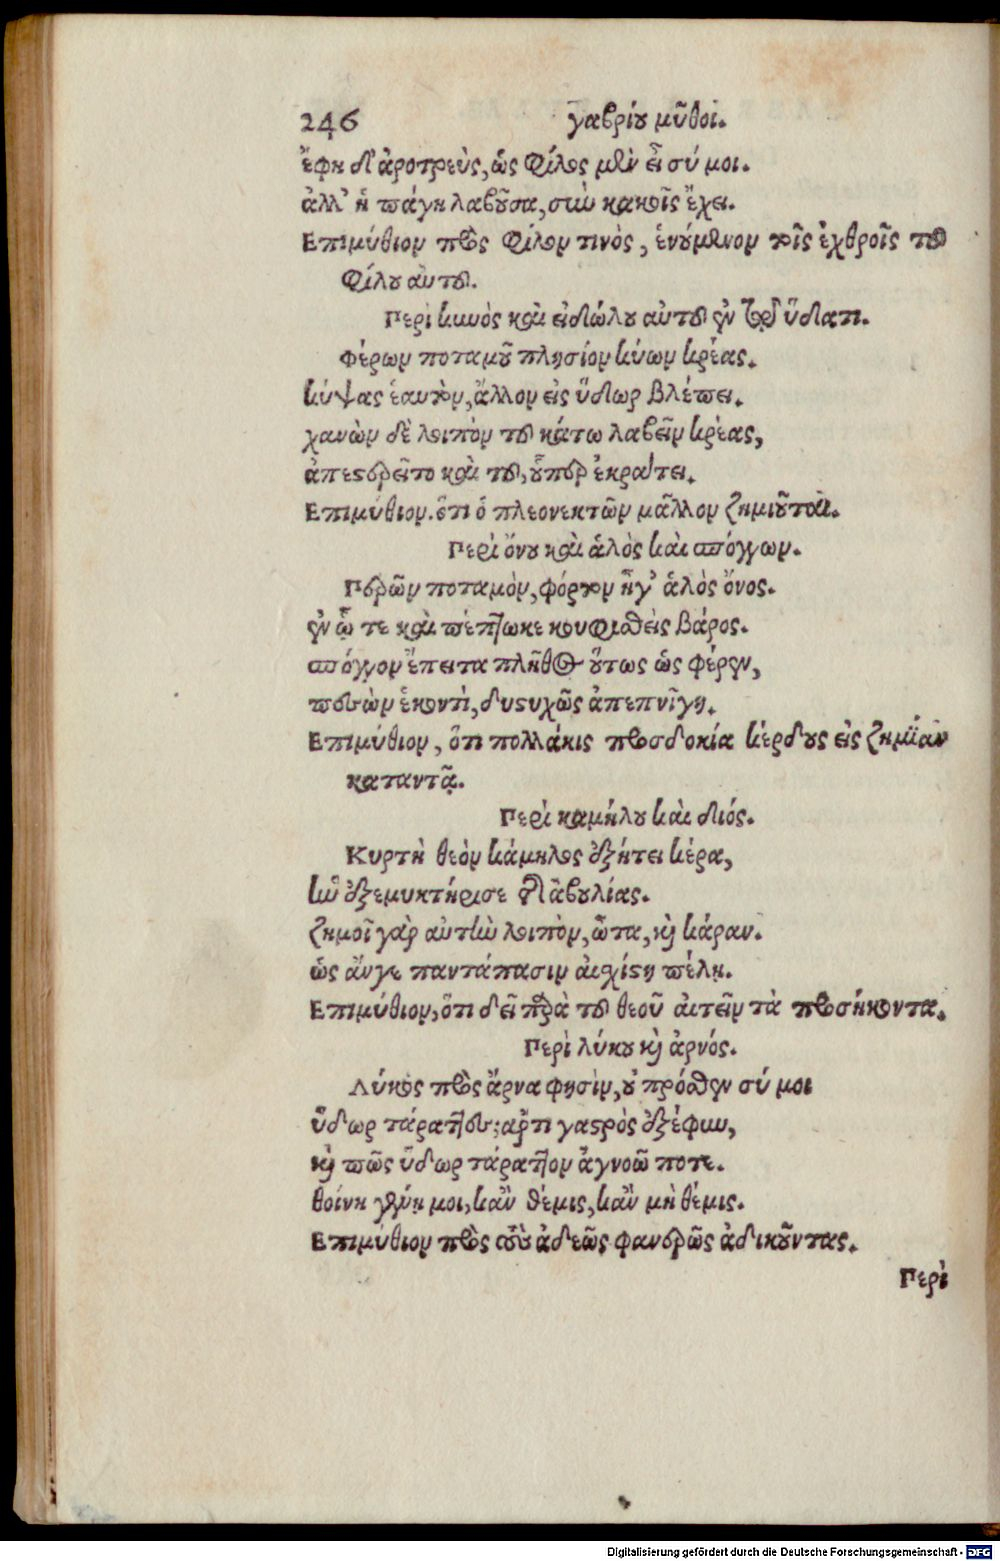 246 γαβρίου μῦθοι.
ἔφη δ' ἀροτρεὺς, ὡς φίλος μὲν εἶ σύ μοι.
ἀλλ' ἡ πάγη λαβοῦσα, σὺν κακοῖς ἔχει.
Επιμύθιον πρὸς φίλον τινὸς, ἑνούμενον τοῖς ἐχθροῖς τοῦ
φίλου αὐτοῦ.
Περὶ κυνὸς καὶ εἰδώλου αὐτοῦ ἐν τῷ ὕδατι.
Φέρων ποταμοῦ πλησίον κύων κρέας.
κύψας ἑαυτὸν, ἄλλον εἰς ὕδωρ βλέπει.
χανὼν δὲ λοιπὸν τοῦ κάτω λαβεῖν κρέας,
ἀπεστερεῖτο καὶ τοῦ, οὗπερ ἐκράτει.
Επιμύθιον. ὅτι ὁ πλεονεκτῶν μᾶλλον ζημιοῦται.
Περὶ ὄνου καὶ ἁλὸς καὶ σπόγγων.
Περῶν ποταμὸν, φόρτον ἦγ' ἁλὸς ὄνος.
ἐν ᾧ τε καὶ πέπτωκε κουφισθεὶς βάρος.
σπόγγον ἔπειτα πλῆθος οὕτως ὡς φέρειν,
πεσὼν ἑκοντὶ, δυστυχῶς ἀπεπνίγη.
Επιμύθιον, ὅτι πολλάκις προσδοκία κέρδους εἰς ζημίαν
καταντᾷ.
Περὶ καμήλου καὶ διός.
Κυρτὴ θεὸν κάμηλος ἐξήτει κέρα,
ἣν ἐξεμυκτήρισε τῆς ἀβουλίας.
ζημοῖ γὰρ αὐτὴν λοιπὸν, ὦτα, καὶ κάραν.
ὡς ἄνγε παντάπασιν αἰσχίστη πέλῃ.
Επιμύθιον, ὅτι δεῖ παρὰ τοῦ θεοῦ αἰτεῖν τὰ προσήκοντα.
Περὶ λύκου καὶ ἀρνός.
Λύκος πρὸς ἄρνα φησὶν, οὐ πρόσθεν σύ μοι
ὕδωρ τάραττες; ἄρτι γαστρὸς ἐξέφυν,
καὶ πῶς ὕδωρ τάραττον ἀγνοῶ ποτε.
θοίνη γένῃ μοι, κἂν θέμις, κἂν μὴ θέμις.
Επιμύθιον πρὸς τοὺς ἀδεῶς φανερῶς ἀδικοῦντας.
Περὶ
Digitalisierung gefördert durch die Deutsche Forschungsgemeinschaft - DFG